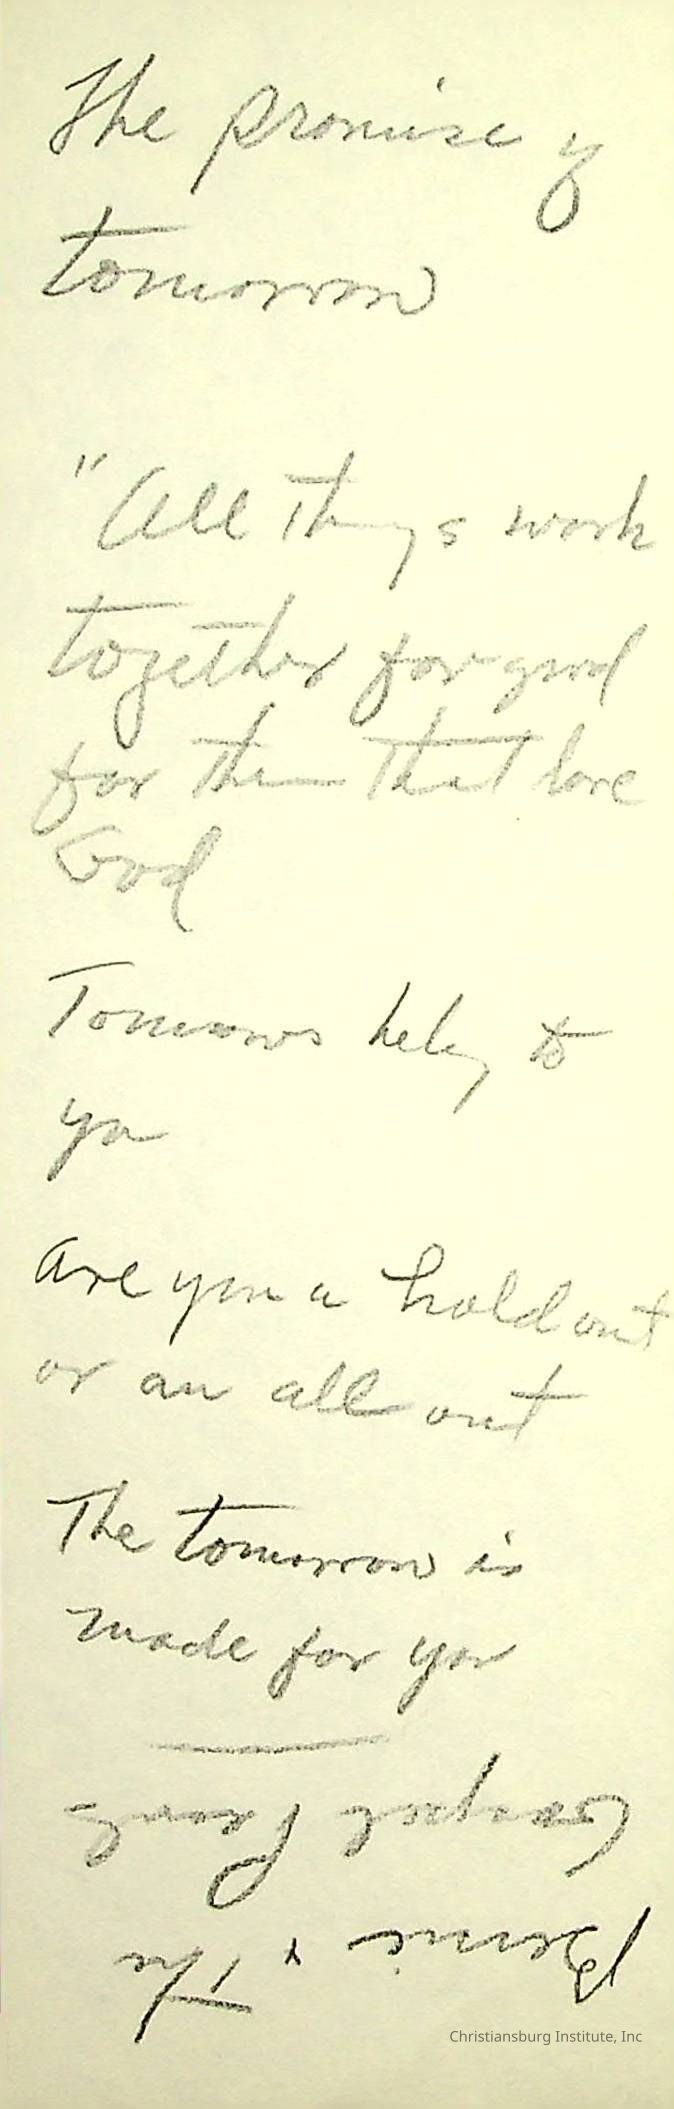 The promise of
tomorrow
"All things work
together for good
for them that love
God
Tomorrows belong to
you
Are you a hold out
or an all out
The tomorrow is
made for you
Bernic + The
Gospel Pearls
Christiansburg Institute, Inc